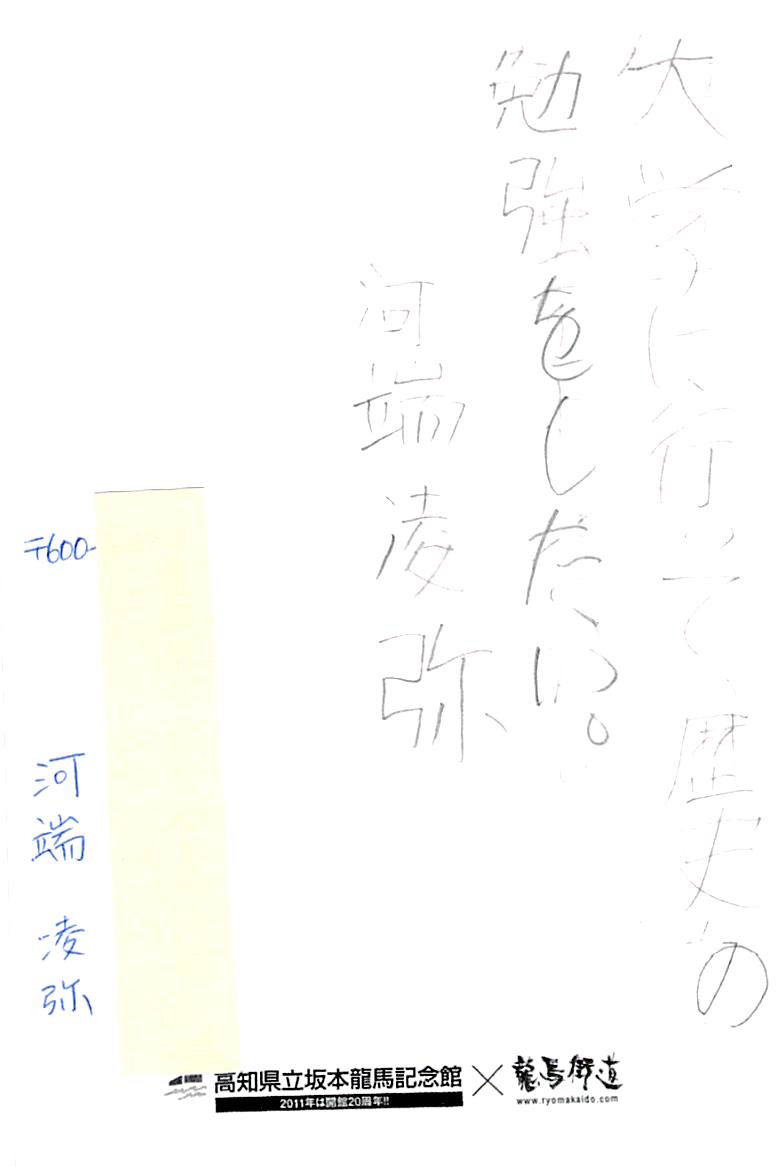 大学に行って、歴史の
勉強をしたい。
河端凌弥
〒600-
河端 凌弥
高知県立坂本龍馬記念館×龍馬街道
2011年は開館20周年!!
www.ryomakaido.com